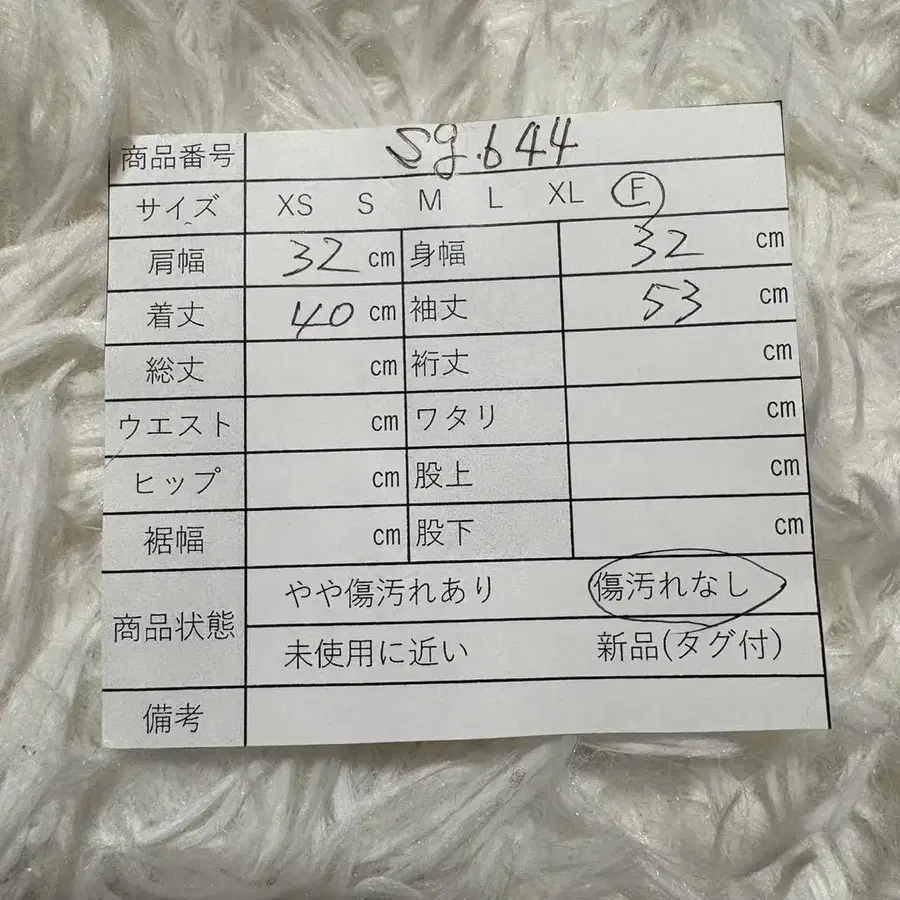 商品番号 Sg.644
サイズ XS S M L XL F
肩幅 32 cm 身幅 32 cm
着丈 40 cm 袖丈 53 cm
総丈 cm 裄丈 cm
ウエスト cm ワタリ cm
ヒップ cm 股上 cm
裾幅 cm 股下 cm
商品状態 やや傷汚れあり 傷汚れなし
未使用に近い 新品(タグ付)
備考